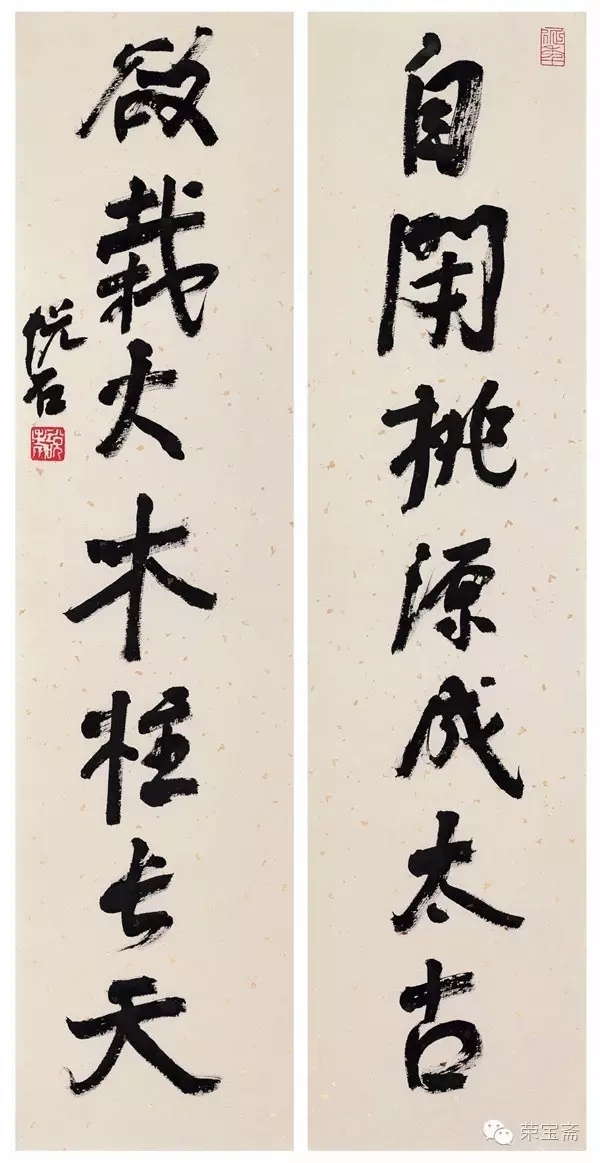 自開桃源成太古
欲栽大木柱长天
荣宝斋